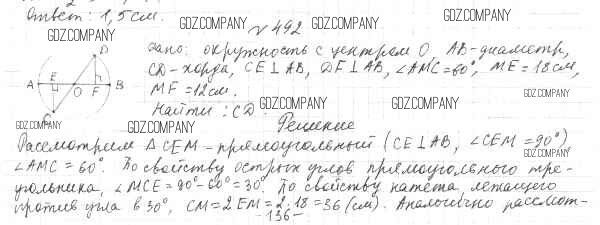 Ответ: 1,5 см.
GDZ.COMPANY GDZ.COMPANY GDZ.COMPANY
№ 492
GDZ.COMPANY
Дано: окружность с центром O, AB-диаметр,
CD-хорда, CE⊥AB, DF⊥AB, ∠AMC=60°, ME=18см,
MF=12см.
GDZ.COMPANY
GDZ.COMPANY GDZ.COMPANY
Найти: CD.
D
A E O F B
C
GDZ.COMPANY GDZ.COMPANY
Решение
Рассмотрим △CEM-прямоугольный (CE⊥AB, ∠CEM=90°)
GDZ.COMPANY
∠AMC=60°. По свойству острых углов прямоугольного тре-
угольника, ∠MCE=90°-60°=30°. По свойству катета, лежащего
против угла в 30°, CM=2EM=2·18=36(см). Аналогично рассмот-
-136-